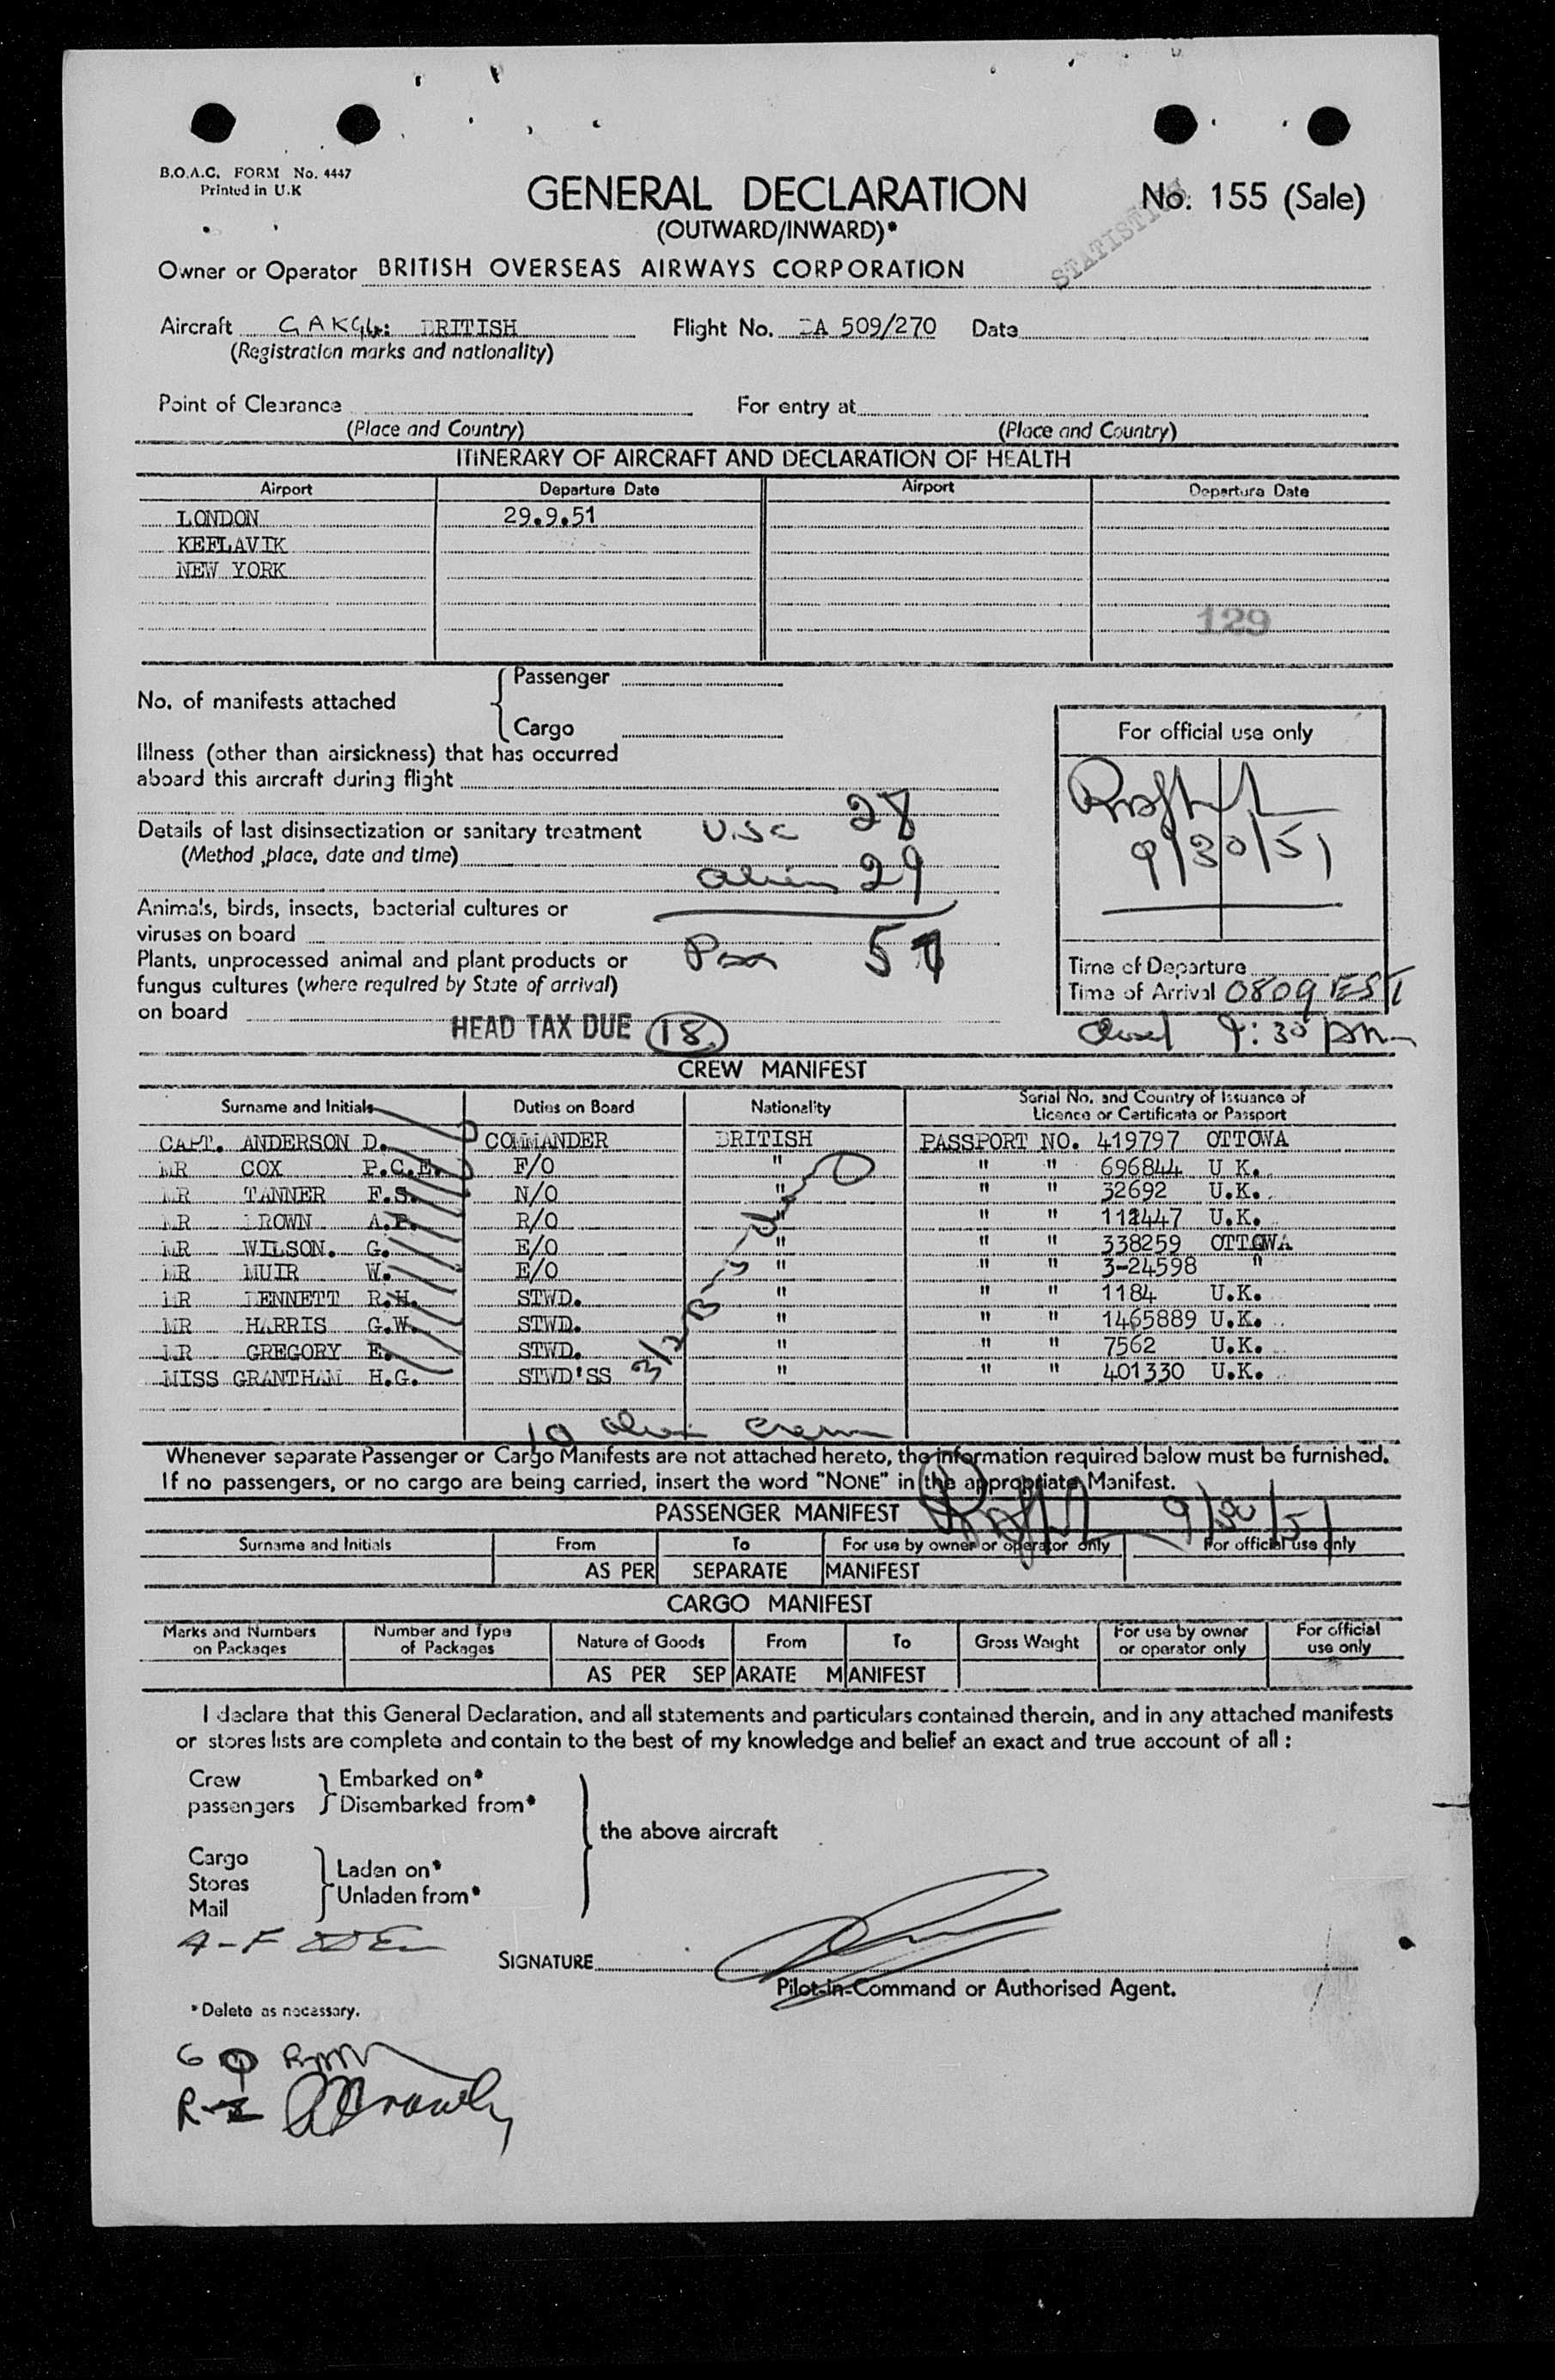 B.O.A.C. FORM No. 4447
Printed in U.K
GENERAL DECLARATION
No. 155 (Sale)
(OUTWARD/INWARD)*
STATISTICS
Owner or Operator BRITISH OVERSEAS AIRWAYS CORPORATION
Aircraft BRITISH Flight No. BA 509/270 Date
(Registration marks and nationality)
Point of Clearance For entry at
(Place and Country) (Place and Country)
ITINERARY OF AIRCRAFT AND DECLARATION OF HEALTH
Airport Departure Date Airport Departure Date
LONDON 29.9.51
KEFLAVIK
NEW YORK
129
No. of manifests attached { Passenger
Cargo
For official use only
Illness (other than airsickness) that has occurred
aboard this aircraft during flight
9/30/51
Details of last disinsectization or sanitary treatment U.S.C 28
(Method ,place, date and time)
alien 29
Animals, birds, insects, bacterial cultures or
viruses on board
Pax 57
Plants, unprocessed animal and plant products or
fungus cultures (where required by State of arrival)
on board
Time of Departure
Time of Arrival 0809 EST
HEAD TAX DUE 18
9:30 pm
CREW MANIFEST
Surname and Initials Duties on Board Nationality Serial No. and Country of Issuance of Licence or Certificate or Passport
CAPT. ANDERSON D. COMMANDER BRITISH PASSPORT NO. 419797 OTTOWA
MR COX P.C.E. F/O " " " 696844 U K.
MR TANNER F.S. N/O " " " 32692 U.K.
MR BROWN A.P. R/O " " " 112447 U.K.
MR WILSON. G. E/O " " " 338259 OTTOWA
MR MUIR W. E/O " " " 3-24598 "
MR BENNETT R.H. STWD. " " " 1184 U.K.
MR HARRIS G.W. STWD. " " " 1465889 U.K.
MR GREGORY E. STWD. " " " 7562 U.K.
MISS GRANTHAM H.G. STWD'SS " " " 401330 U.K.
10 alien crew
Whenever separate Passenger or Cargo Manifests are not attached hereto, the information required below must be furnished.
If no passengers, or no cargo are being carried, insert the word "NONE" in the appropriate Manifest.
PASSENGER MANIFEST
9/30/51
Surname and Initials From To For use by owner or operator only For official use only
AS PER SEPARATE MANIFEST
CARGO MANIFEST
Marks and Numbers on Packages Number and Type of Packages Nature of Goods From To Gross Weight For use by owner or operator only For official use only
AS PER SEPARATE MANIFEST
I declare that this General Declaration, and all statements and particulars contained therein, and in any attached manifests
or stores lists are complete and contain to the best of my knowledge and belief an exact and true account of all :
Crew Embarked on*
passengers Disembarked from*
the above aircraft
Cargo
Stores Laden on*
Mail Unladen from*
SIGNATURE
Pilot-in-Command or Authorised Agent.
* Delete as necessary.